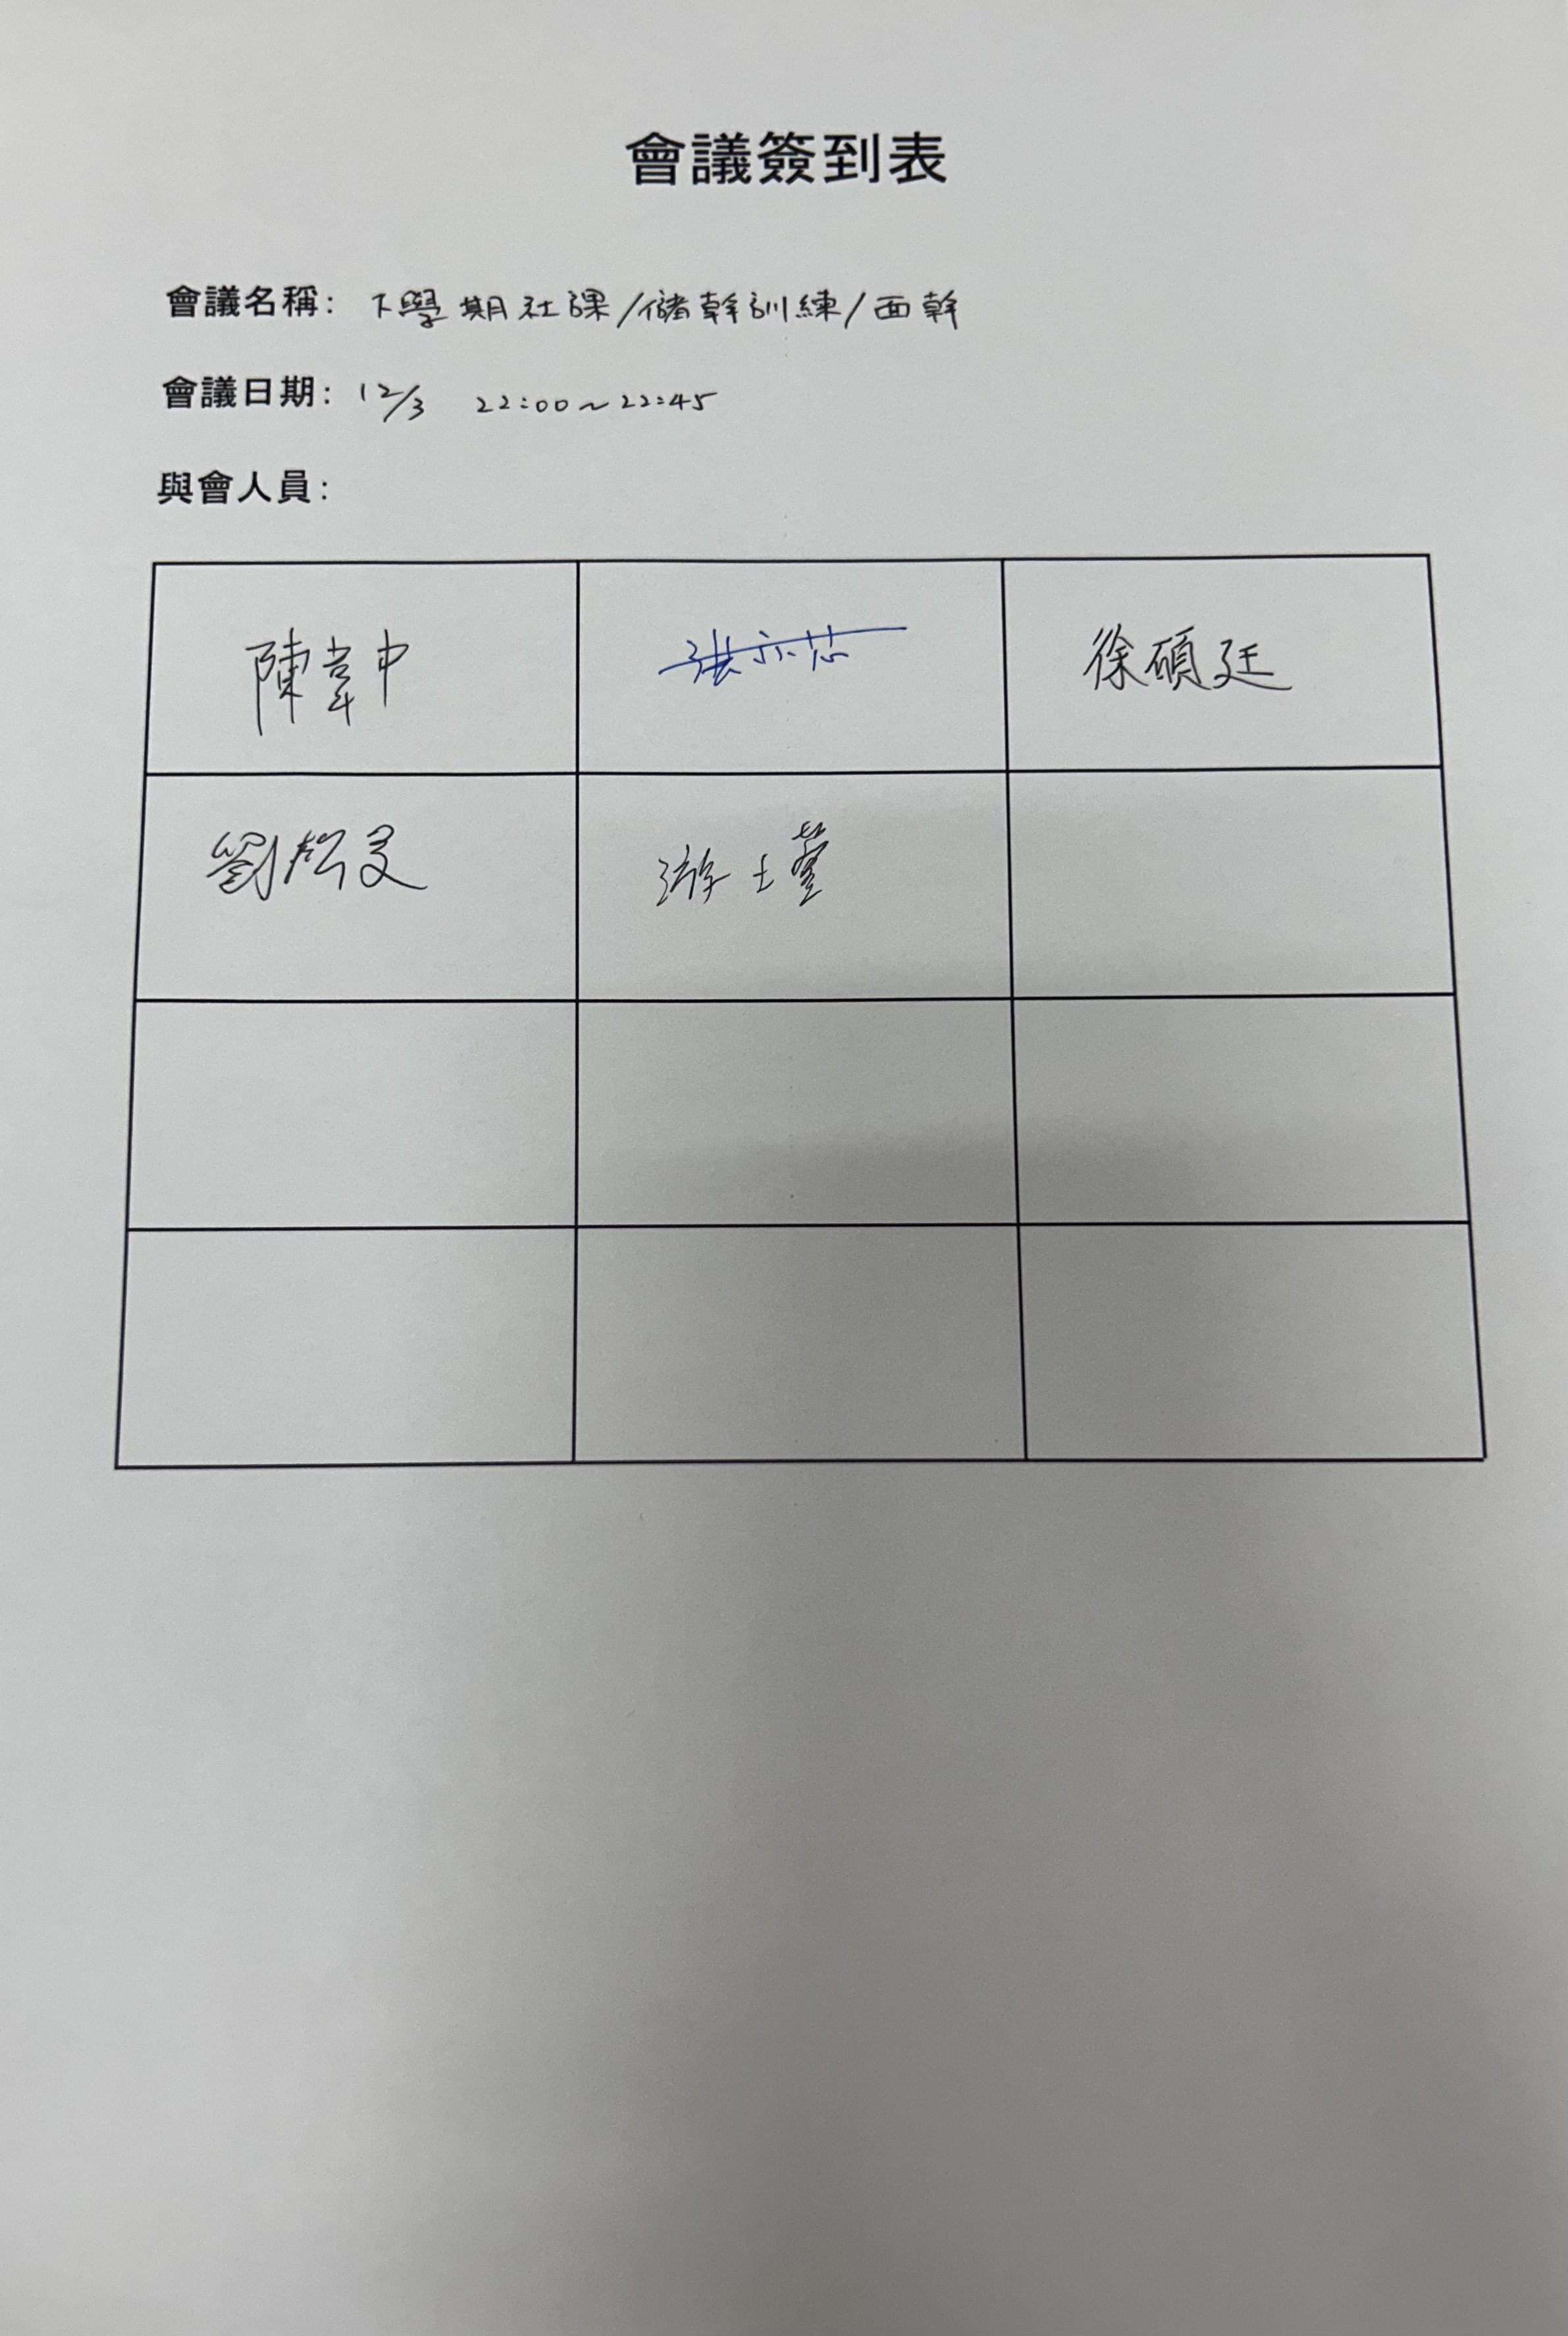 會議簽到表
會議名稱: 下學期社課/儲幹訓練/面幹
會議日期: 12/3 22:00~22:45
與會人員:
陳韋中
徐碩廷
劉
游士